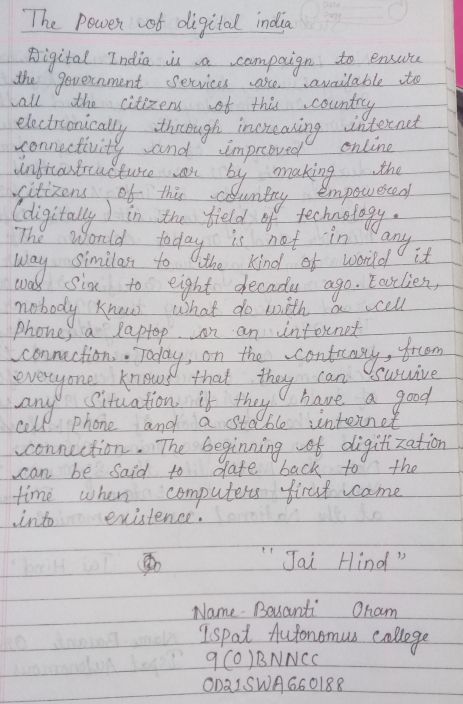 The Power of digital india
Digital India is a campaign to ensure
the government services are available to
all the citizens of this country
electronically through increasing internet
connectivity and improved online
infrastructure or by making the
citizens of this country empowered
(digitally) in the field of technology.
The World today is not in any
way similar to the kind of world it
was six to eight decades ago. Earlier,
nobody knew what do with a cell
phone, a laptop or an internet
connection. Today, on the contrary, from
everyone knows that they can survive
any situation if they have a good
cell phone and a stable internet
connection. The beginning of digitization
can be said to date back to the
time when computers first came
into existence.
"Jai Hind"
Name- Basanti Oram
Ispat Autonomus College
9(O)BNNCC
OD21SWA660188